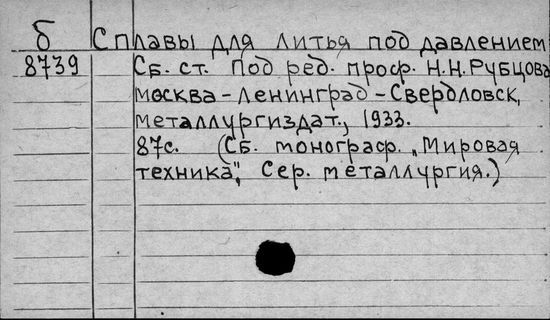 Б Сплавы для литья под давлением
8739 Сб. ст. Под ред. проф. Н.Н. Рубцова
Москва-Ленинград-Свердловск,
Металлургиздат, 1933.
87с. (Сб. монограф. „Мировая
техника", Сер. металлургия.)